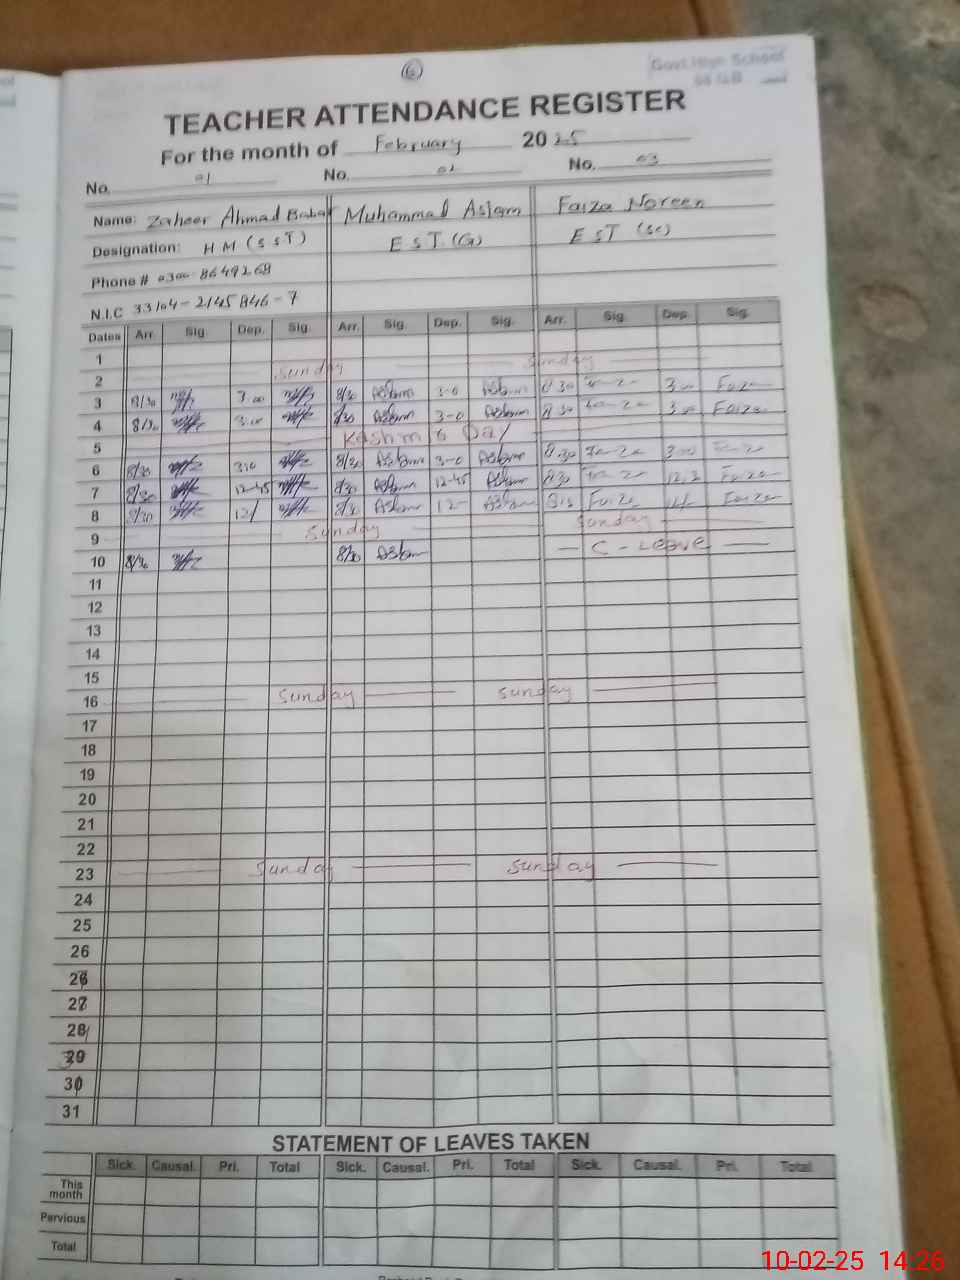 6
Govt. High School
TEACHER ATTENDANCE REGISTER
For the month of February 2025
No. 01 No. 02 No. 03
Name: Zaheer Ahmad Babar Muhammad Aslam Faiza Noreen
Designation: HM (SST) EST (G) EST (Sc)
Phone # 0300-8649268
N.I.C 33104-2145846-7
Dates Arr. Sig. Dep. Sig. Arr. Sig. Dep. Sig. Arr. Sig. Dep. Sig.
1
2 Sunday Sunday
3 8/30 3.00 8/30 Aslam 3-0 Aslam 8.30 3.00 Faiza
4 8/30 3.00 8/30 Aslam 3-0 Aslam 8.30 3.00 Faiza
5 Kashmir Day
6 8/30 3.0 8/30 Aslam 3-0 Aslam 8.30 3.00
7 8/30 12-45 8/30 Aslam 12-45 Aslam 8.30 Faiza
8 8/30 12/ 8/30 Aslam 12- Aslam 8.15 Faiza Faiza
9 Sunday Sunday
10 8/30 8/30 Aslam C-Leave
11
12
13
14
15
16 Sunday Sunday
17
18
19
20
21
22
23 Sunday Sunday
24
25
26
27
28
29
30
31
STATEMENT OF LEAVES TAKEN
Sick. Causal. Pri. Total Sick. Causal. Pri. Total Sick. Causal. Pri. Total
This month
Pervious
Total
10-02-25 14:26